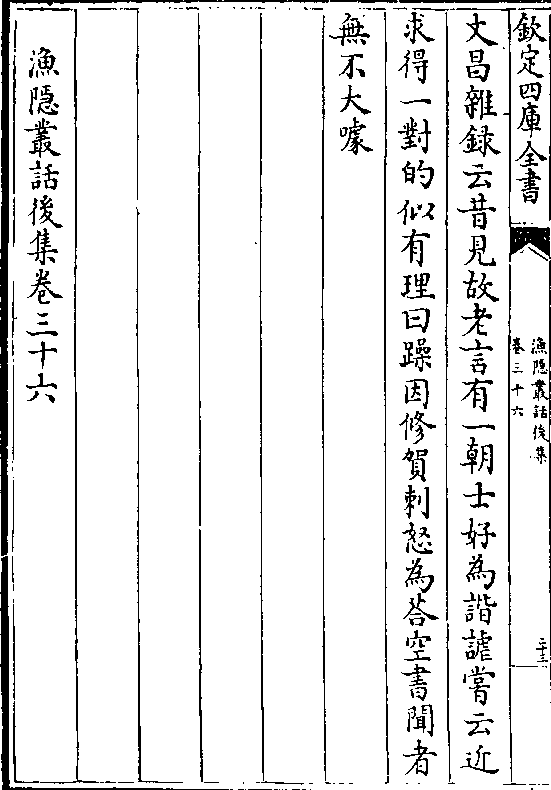 欽定四庫全書
漁隠叢話後集
卷三十六
二十三
文昌雜録云昔見故老言有一朝士好為諧謔嘗云近
求得一對的似有理曰躁因修賀刺怒為荅空書聞者
無不大噱
漁隠叢話後集卷三十六